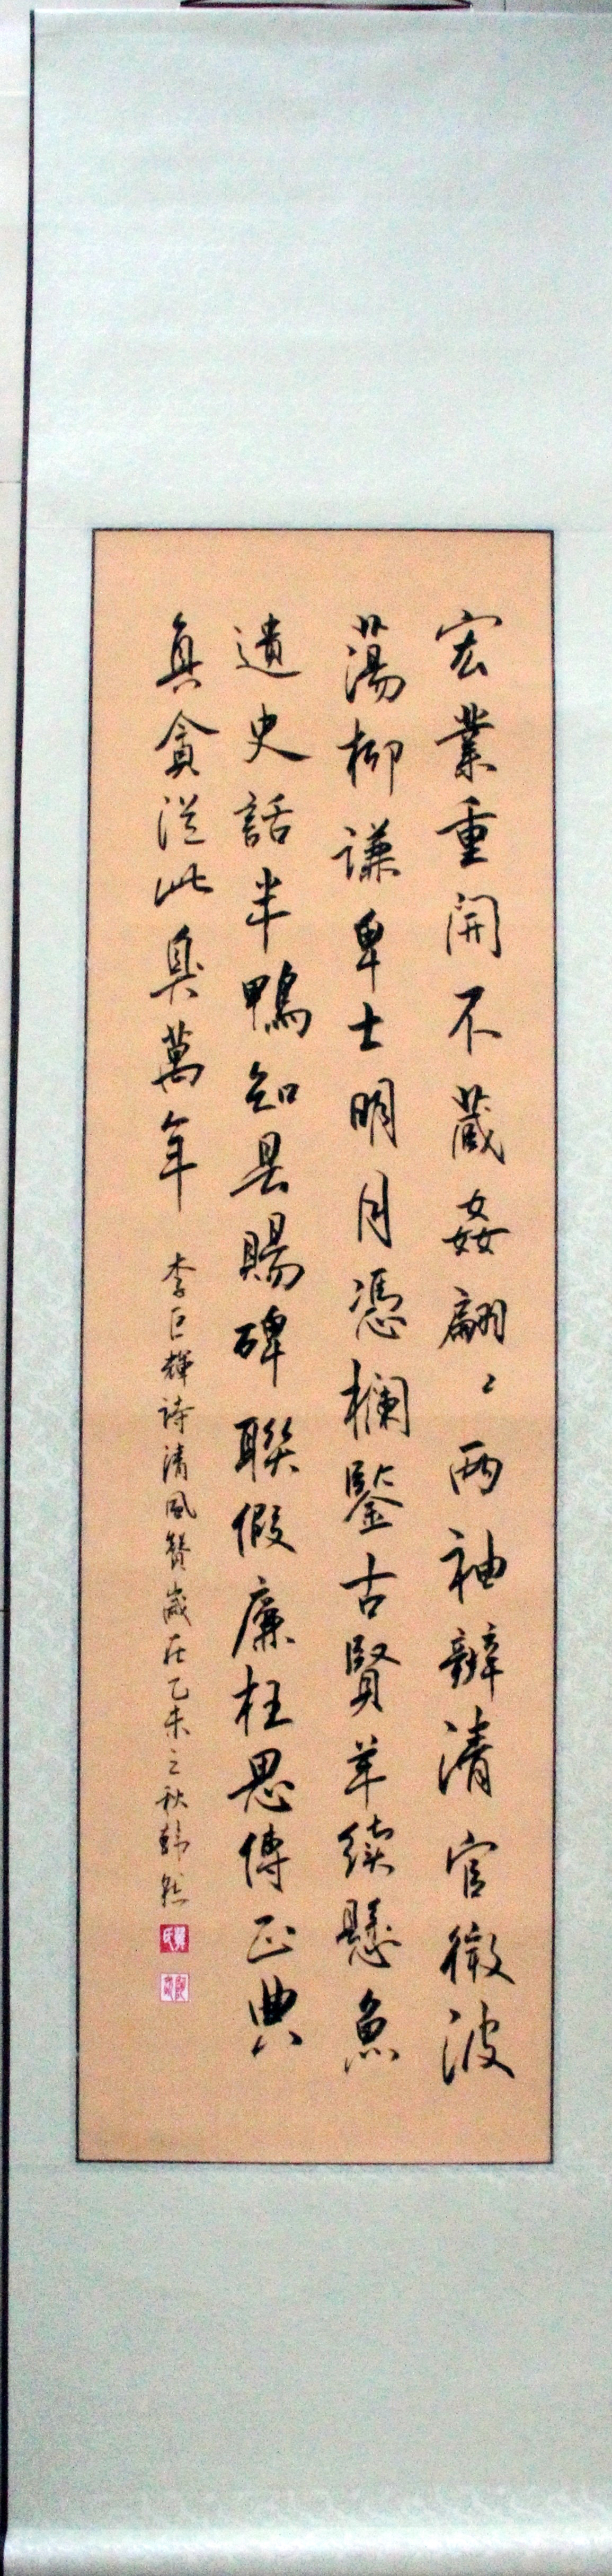 宏業重開不藏姦翩〻兩袖辦清官微波
蕩柳謙卑士明月憑欄鑒古賢羊續懸魚
遺史話半鴨知县賜碑聯假廉枉思傳正典
真貪從此臭萬年
李巨輝诗清風贊歲在乙未之秋韩